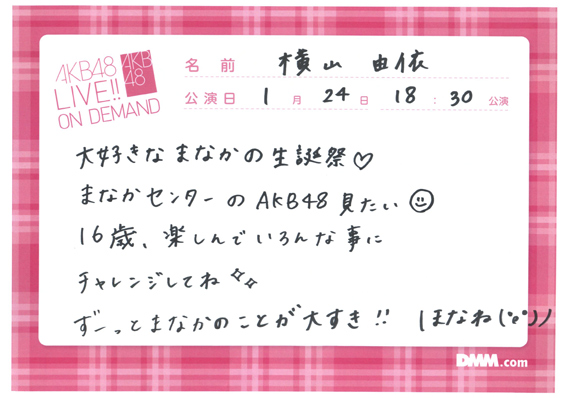 AKB48
LIVE!!
ON DEMAND
AKB
48
名 前 横山 由依
公演日 1 月 24 日 18 : 30 公演
大好きなまなかの生誕祭♡
まなかセンターのAKB48見たい☺
16歳、楽しんでいろんな事に
チャレンジしてね✧✧
ずーっとまなかのことが大すき!! ほなね(°e°)ノ
DMM.com